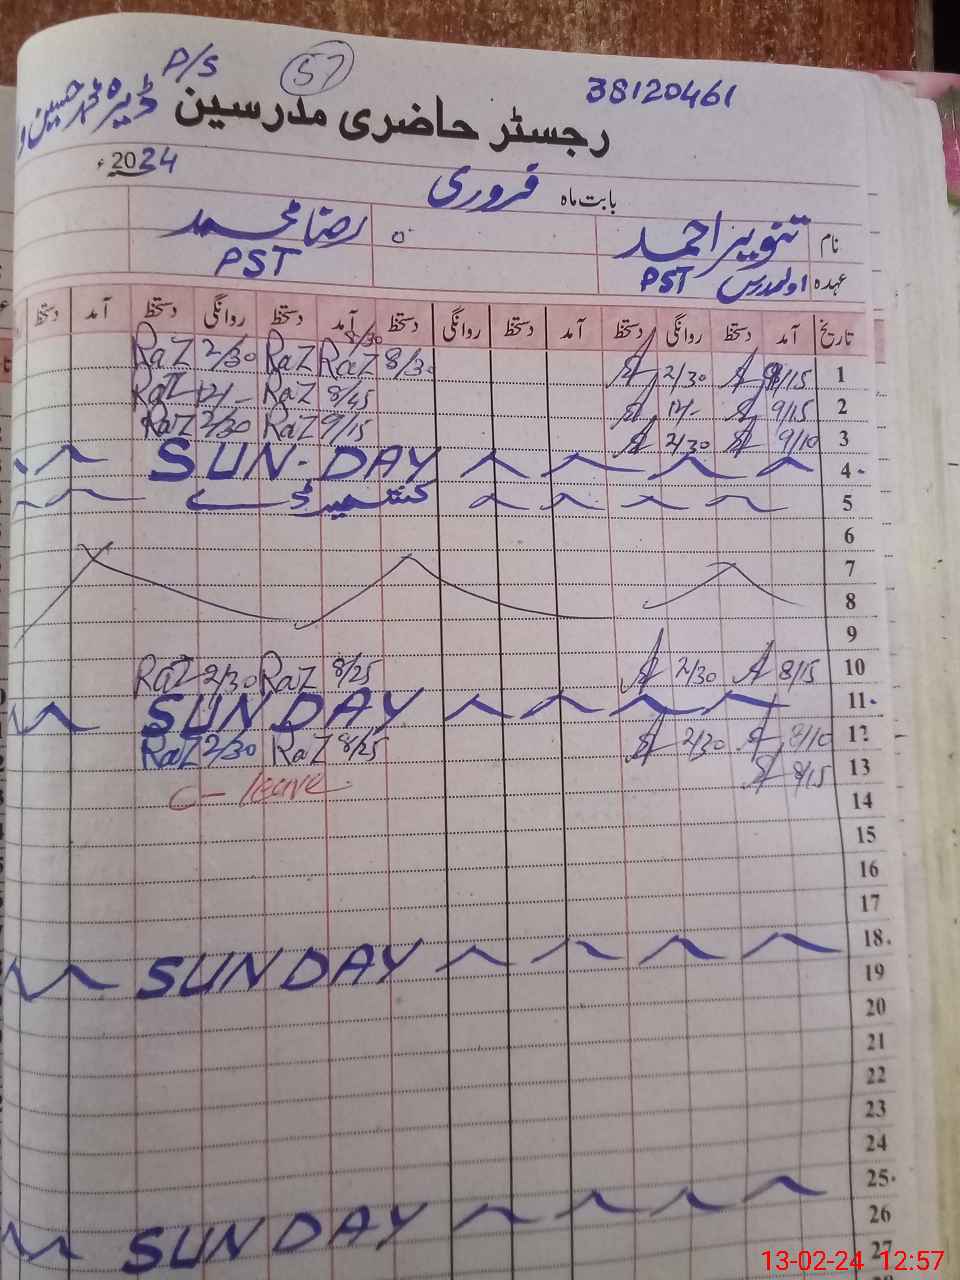 P/S 57 38120461
رجسٹر حاضری مدرسین ڈیرہ محمد حسین
بابت ماہ فروری 2024ء
نام تنویر احمد رضا محمد
عہدہ اول مدرس PST PST
تاریخ آمد دستخط روانگی دستخط آمد دستخط روانگی دستخط آمد دستخط روانگی دستخط آمد دستخط
1 2/30 8/30 RaZ RaZ 2/30 RaZ 8/30
2 9/15 12/- 8/45 RaZ 12/- RaZ
3 9/10 2/30 9/15 RaZ 2/30 RaZ
4 SUN-DAY
5 کشمیر ڈے
6
7
8
9
10 8/15 2/30 8/25 RaZ 2/30 RaZ
11 SUNDAY
12 8/10 2/30 8/25 RaZ 2/30 RaZ
13 8/15 C-leave
14
15
16
17
18 SUNDAY
19
20
21
22
23
24
25 SUNDAY
26
27
13-02-24 12:57